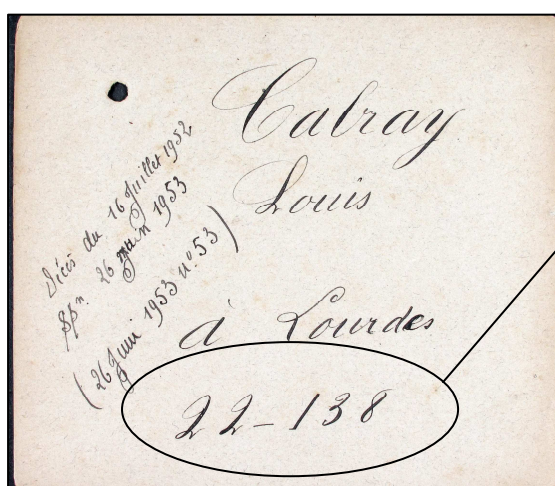 Louis
à Lourdes
22-138
Décès du 16 Juillet 1952
26 juin 1953
(26 Juin 1953 n° 53)